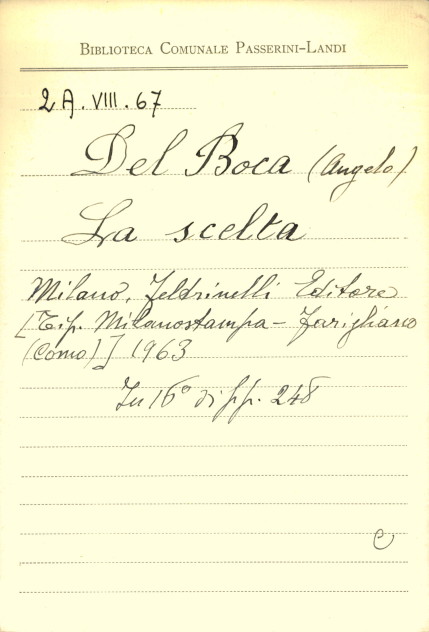 BIBLIOTECA COMUNALE PASSERINI-LANDI
2A. VIII. 67
Del Boca (Angelo)
La scelta
Milano, Feltrinelli Editore
[Tip. Milanostampa - Farigliano
(Como)] 1963
In 16° di pp. 248
e